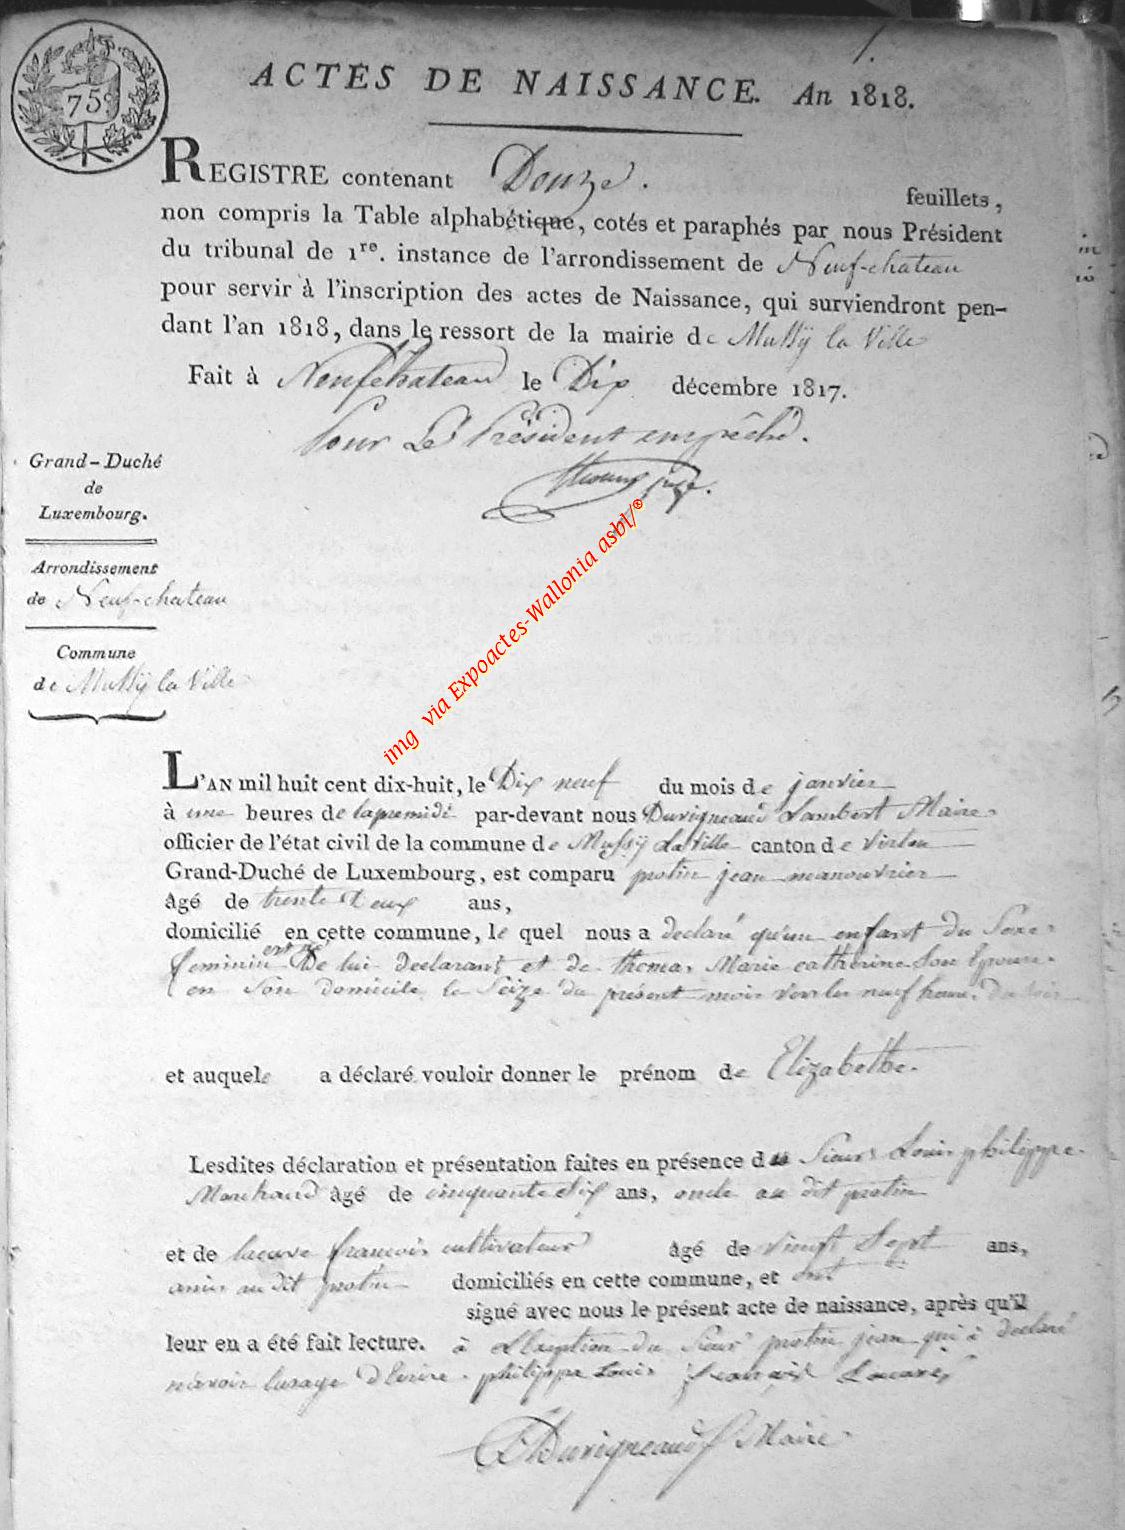 1.
75
ACTES DE NAISSANCE. An 1818.
REGISTRE contenant Douze. feuillets,
non compris la Table alphabétique, cotés et paraphés par nous Président
du tribunal de 1re. instance de l'arrondissement de Neuf-chateau
pour servir à l'inscription des actes de Naissance, qui surviendront pen-
dant l'an 1818, dans le ressort de la mairie de Mussÿ la Ville
Fait à Neufchateau le Dix décembre 1817.
Pour Le Président empêché.
juge.
Grand-Duché
de
Luxembourg.
Arrondissement
de Neuf-chateau
Commune
de Mussÿ la Ville
img via Expoactes-Wallonia asbl/®
L'AN mil huit cent dix-huit, le Dix neuf du mois de janvier
à une heures de lapremidi par-devant nous Duvigneaud Lambert Maire
officier de l'état civil de la commune de Mussÿ La Ville canton de virton
Grand-Duché de Luxembourg, est comparu protin jean manouvrier
âgé de trente deux ans,
domicilié en cette commune, le quel nous a declaré qu'un enfant du Sexe
feminin est né De lui declarant et de thomas Marie catherine Son Epouse
en Son domicile le Seize du présent mois vers les neuf heures du soir
et auquele a déclaré vouloir donner le prénom de Elizabethe.
Lesdites déclaration et présentation faites en présence du Sieur Louis philippe
Marchand âgé de cinquante dix ans, oncle au dit protin
et de lacave françois cultivateur âgé de vingt Sept ans,
amis au dit protin domiciliés en cette commune, et ont
signé avec nous le présent acte de naissance, après qu'il
leur en a été fait lecture. à L'exeption du Sieur protin jean qui à declaré
n'avoir lusage d'Ecrire. philippe Louis francois Lacave
Duvigneaud Maire